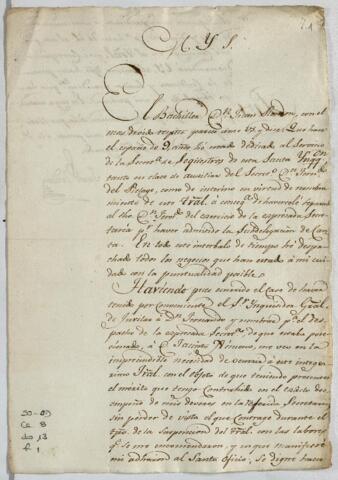 M. Y. S.
El Bachiller Dn. Juan , con el
mas devido respeto parece ante VS y dice: Que hace
el espacio de 2 años ha estado dedicado al servicio
de la Secreta. de Seqüestros de esta Santa Inqqon.
tanto en clase de auxiliar del Secreto.
del , como de interino en virtud de nombra
miento de este Tral. a conseqa. de haversele separado
al dho del exercicio de la expresada Secre
taria pr. haver admitido la Subdelegacion de Can
ta. En todo este interbalo de tiempo he des
pachado todos los negocios que han estado á mi cui
dado con la puntualidad posible.
Haviendo pues
tenido por conveniente el Sr. Inquisidor Gral.
de á Dn. Fernando y nombrar pa. el des
pacho de la expresada Secreta. de que estaba pose
cionado, á D. Jacinto Ximeno, me veo en la
imprecindible necesidad de ocurrir á este integer
rimo Tral. con el objeto de que teniendo presente
el mérito que tengo contrahido en el exacto des
empeño de mis deveres en la referida Secretaria
sin perder de vista el que contraxe durante el
tpo. de la suspencion del Tral. con las labores
qe. se me encomendaron y en que manifesté
mi adhecion al Santo Oficio, se digne hacer
50-09
Ca 8
do 13
f. 1